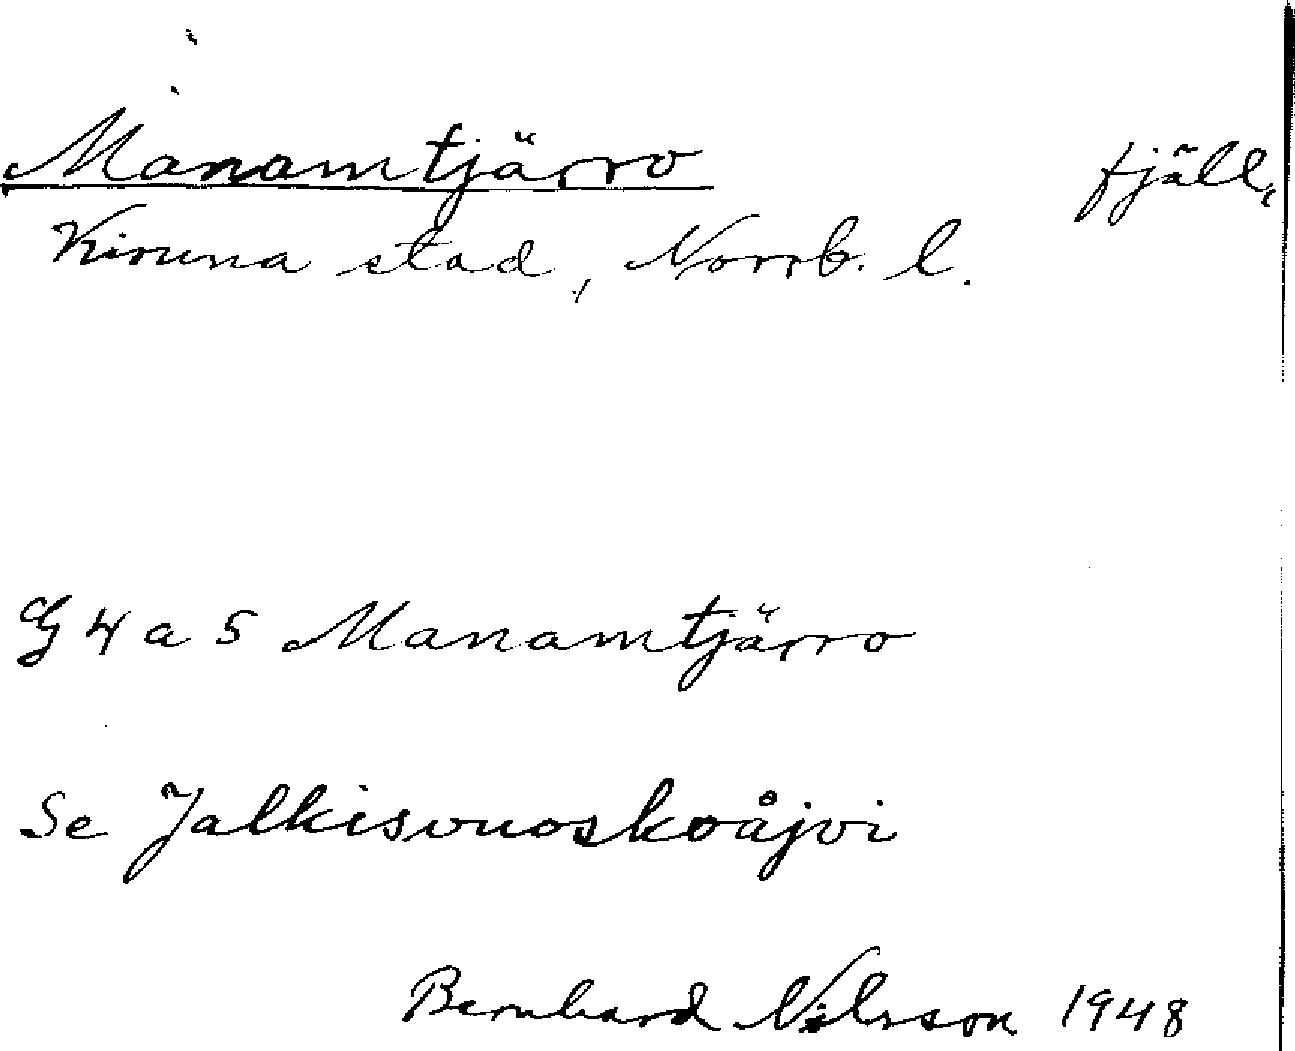 Manamtjärro fjäll,
Kiruna stad, Norrb. l.
G 4 a 5 Manamtjärro
Se Jalkisvuoskoåjvi
Bernhard Nilsson 1948